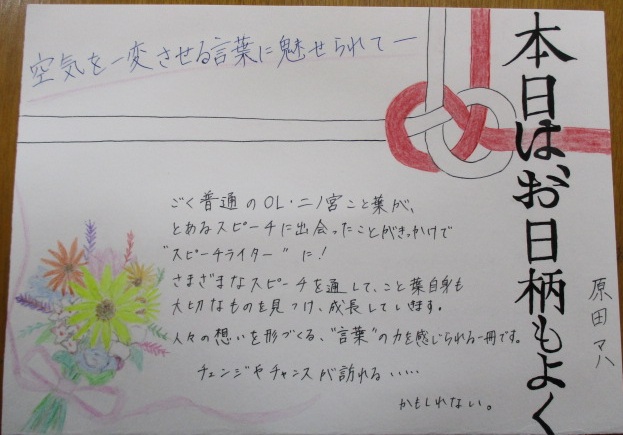 本日はお日柄もよく
原田マハ
空気を一変させる言葉に魅せられて―
ごく普通のOL・二ノ宮こと葉が、
とあるスピーチに出会ったことがきっかけで
"スピーチライター"に!
さまざまなスピーチを通して、こと葉自身も
大切なものを見つけ、成長していきます。
人々の想いを形づくる、"言葉"の力を感じられる一冊です。
チェンジやチャンスが訪れる……
かもしれない。